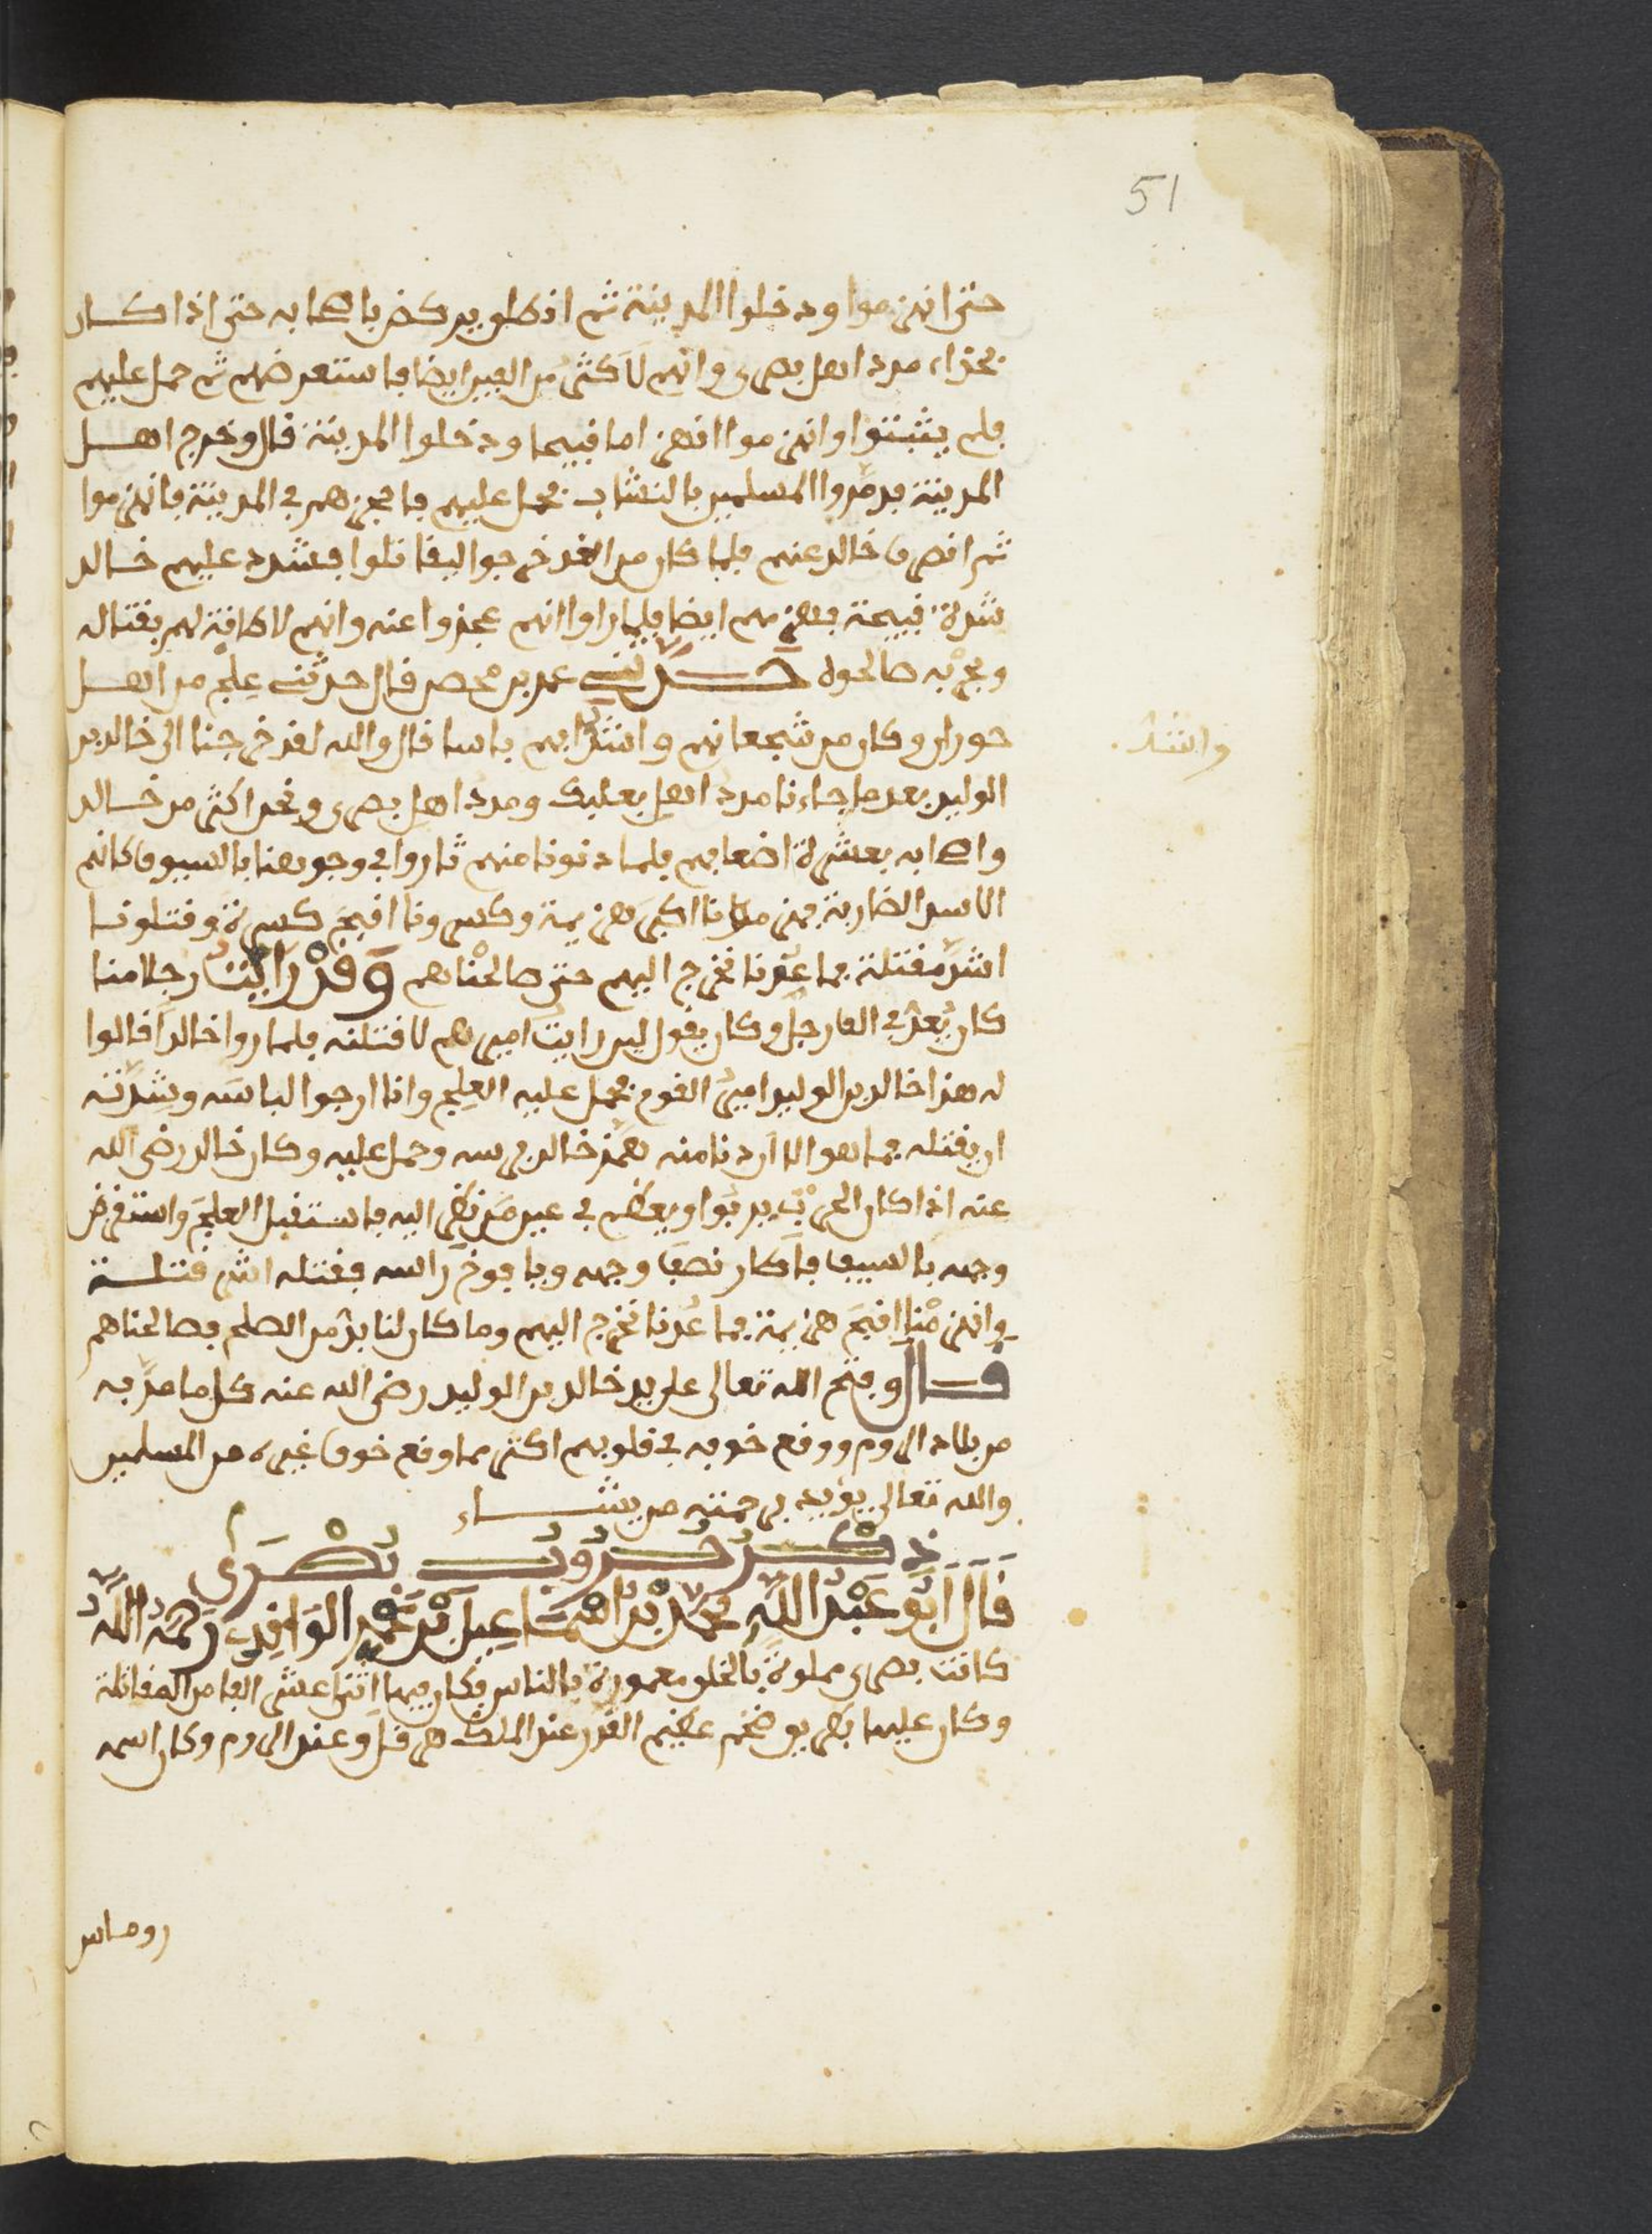 51
حتى انهزموا ودخلوا المدينة ثم انطلق يركض باصحابه حتى اذا كان
بحذاء مدد اهل بصرى وانهم لاكثر من الفين ايضا فاستعرضهم ثم حمل عليهم
فلم يثبتوا وانهزموا انهزاما قبيحا ودخلوا المدينة قال وخرج اهل
المدينة فرموا المسلمين بالنشاب فحمل عليهم فاحجزهم في المدينة فانهزموا
ثم انصرف خالد عنهم فلما كان من الغد خرجوا ليقاتلوا فشدد عليهم خالد
شدة قبيحة فهزمهم ايضا فلما راوا انهم عجزوا عنه وانهم لا طاقة لهم بقتاله
وبحربه صالحوه حدثني عمر بن محصن قال حدثني علج من اهل
حوران وكان من شجعانهم واشدايهم باسا قال والله لقد خرجنا الى خالد بن
واشد
الوليد بعد ما جاءنا مدد اهل بعلبك ومدد اهل بصرى ونحن اكثر من خالد
واصحابه بعشرة اضعافهم فلما دنونا منهم ثاروا في وجوهنا بالسيوف كانهم
الاسد الضارية فهزمونا اكبر هزيمة وكسرونا اقبح كسرة وقتلونا
اشد مقتلة فما عدنا نخرج اليهم حتى صالحناهم وقد رايت رجلا منا
كان يعد في الف رجل وكان يقول لين رايت اميرهم لاقتلنه فلما روا خالدا قالوا
له هذا خالد بن الوليد امير القوم فحمل عليه العلج وانا ارجوا لباسه وشدته
ان يقتله فما هو الا ان دنا منه فهمز خالد فرسه وحمل عليه وكان خالد رضى الله
عنه اذا كان الحرب يربوا ويعظم في عين من نظر اليه فاستقبل العلج واستعرض
وجهه بالسيف فاطار نصف وجهه ويافوخ راسه فقتله اشر قتلة
وانهزمنا اقبح هزيمة فما عدنا نخرج اليهم وما كان لنا بد من الصلح فصالحناهم
قال وفتح الله تعالى على يد خالد بن الوليد رضى الله عنه كل ما مر به
من بلاد الروم ووقع خوفه في قلوبهم اكثر مما وقع خوف غيره من المسلمين
والله تعالى يؤيد برحمته من يشاء
ذكر حروب بصرى
قال ابو عبد الله محمد بن اسماعيل بن عمر الواقدي رحمه الله
كانت بصرى مملوة بالخلق معمورة بالناس فكان فيها اثنا عشر الفا من المقاتلة
وكان عليها بطريق ضخم عظيم القدر عند الملك هرقل وعند الروم وكان اسمه
روماس